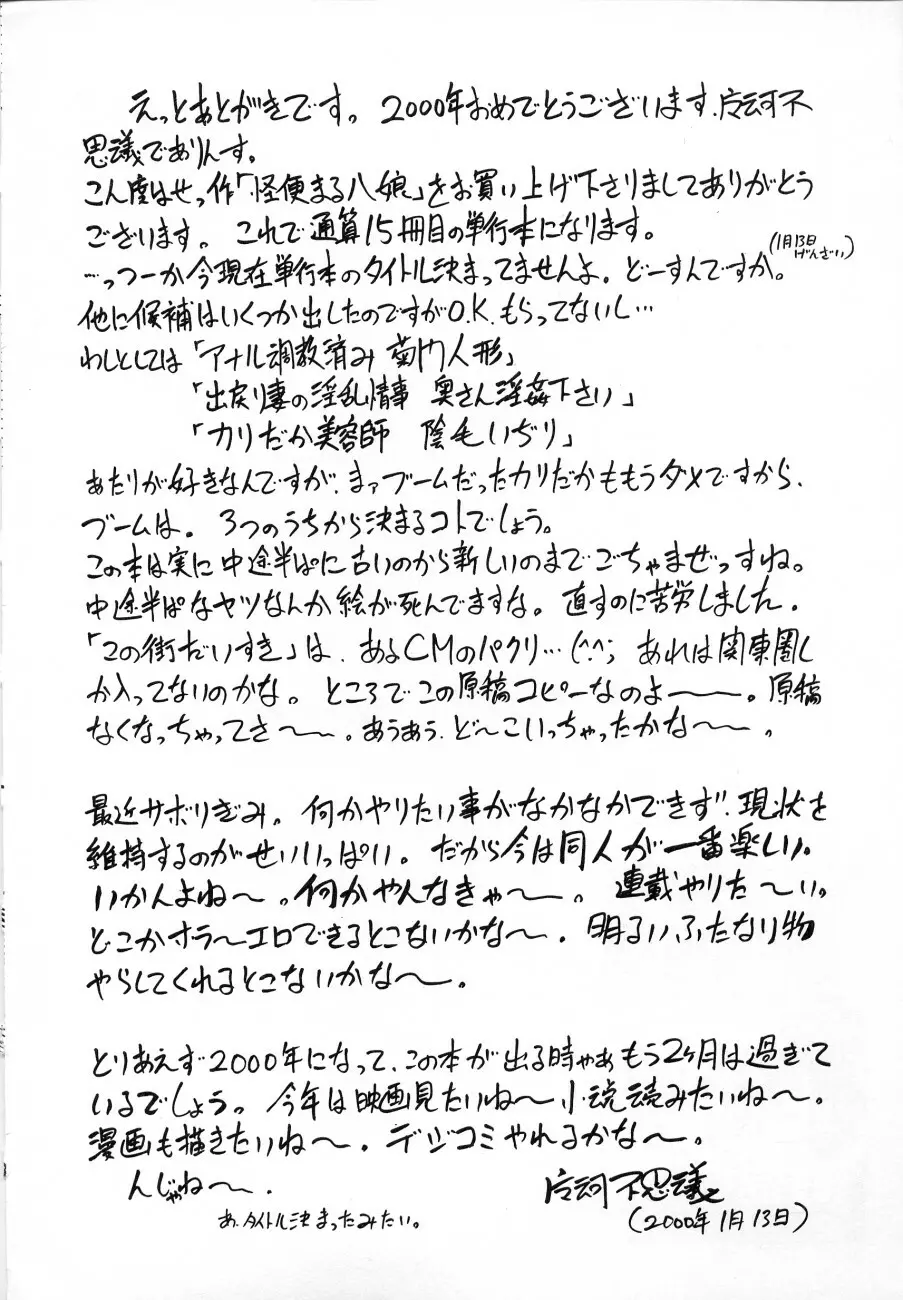 えっとあとがきです。2000年おめでとうございます、片訶不
思議でありんす。
こん度はせっ作「怪便まる八娘」をお買い上げ下さりましてありがとう
ございます。これで通算15冊目の単行本になります。
(1月13日
げんざい)
…っつーか今現在単行本のタイトル決まってませんよ。どーすんですか。
他に候補はいくつか出したのですがO.K.もらってないし…
わしとしては「アナル調教済み 菊門人形」
「出戻り妻の淫乱情事 奥さん淫姦下さい」
「カリだか美容師 陰毛いぢり」
あたりが好きなんですが、まァブームだったカリだかももうダメですから、
ブームは。3つのうちから決まるコトでしょう。
この本は実に中途半ぱに古いのから新しいのまでごちゃまぜっすね。
中途半ぱなヤツなんか絵が死んでますな。直すのに苦労しました。
「この街だいすき」は、あるCMのパクリ…(^^; あれは関東圏し
か入ってないのかな。ところでこの原稿コピーなのよ〜。原稿
なくなっちゃってさ〜。あうあう、ど〜こいっちゃったかな〜。
最近サボリぎみ。何かやりたい事がなかなかできず、現状を
維持するのがせいいっぱい。だから今は同人が一番楽しい。
いかんよね〜。何かやんなきゃ〜。連載やりた〜い。
どこかホラ〜エロできるとこないかな〜。明るいふたなり物
やらしてくれるとこないかな〜。
とりあえず2000年になって、この本が出る時やぁもう2ヶ月は過ぎて
いるでしょう。今年は映画見たいね〜小説読みたいね〜。
漫画も描きたいね〜。デジコミやれるかな〜。
んじゃね〜。
片訶不思議
あ、タイトル決まったみたい。
(2000年1月13日)